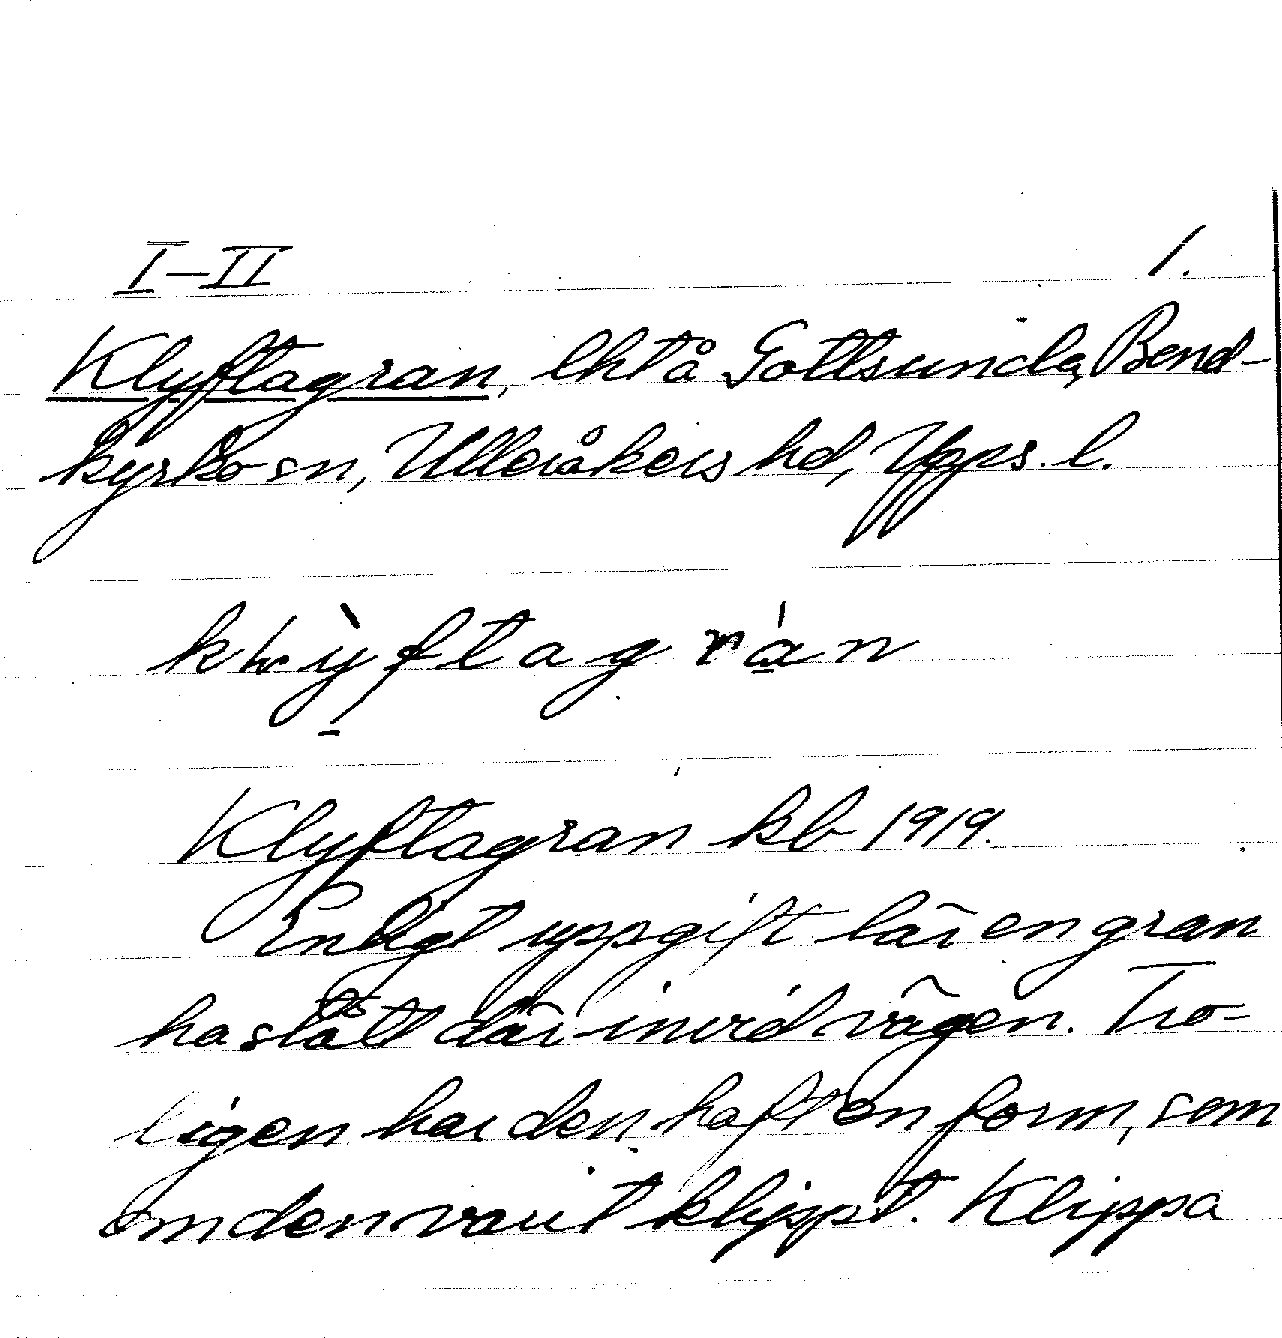 I–II 1.
Klyftagran, lht å Gottsunda, Bend-
kyrko sn, Ulleråkers hd, Upps. l.
Klyftagran kb 1919.
Enligt uppgift lär en gran
ha stått där invid vägen. Tro-
ligen har den haft en form, som
om den varit klippt. Klippa